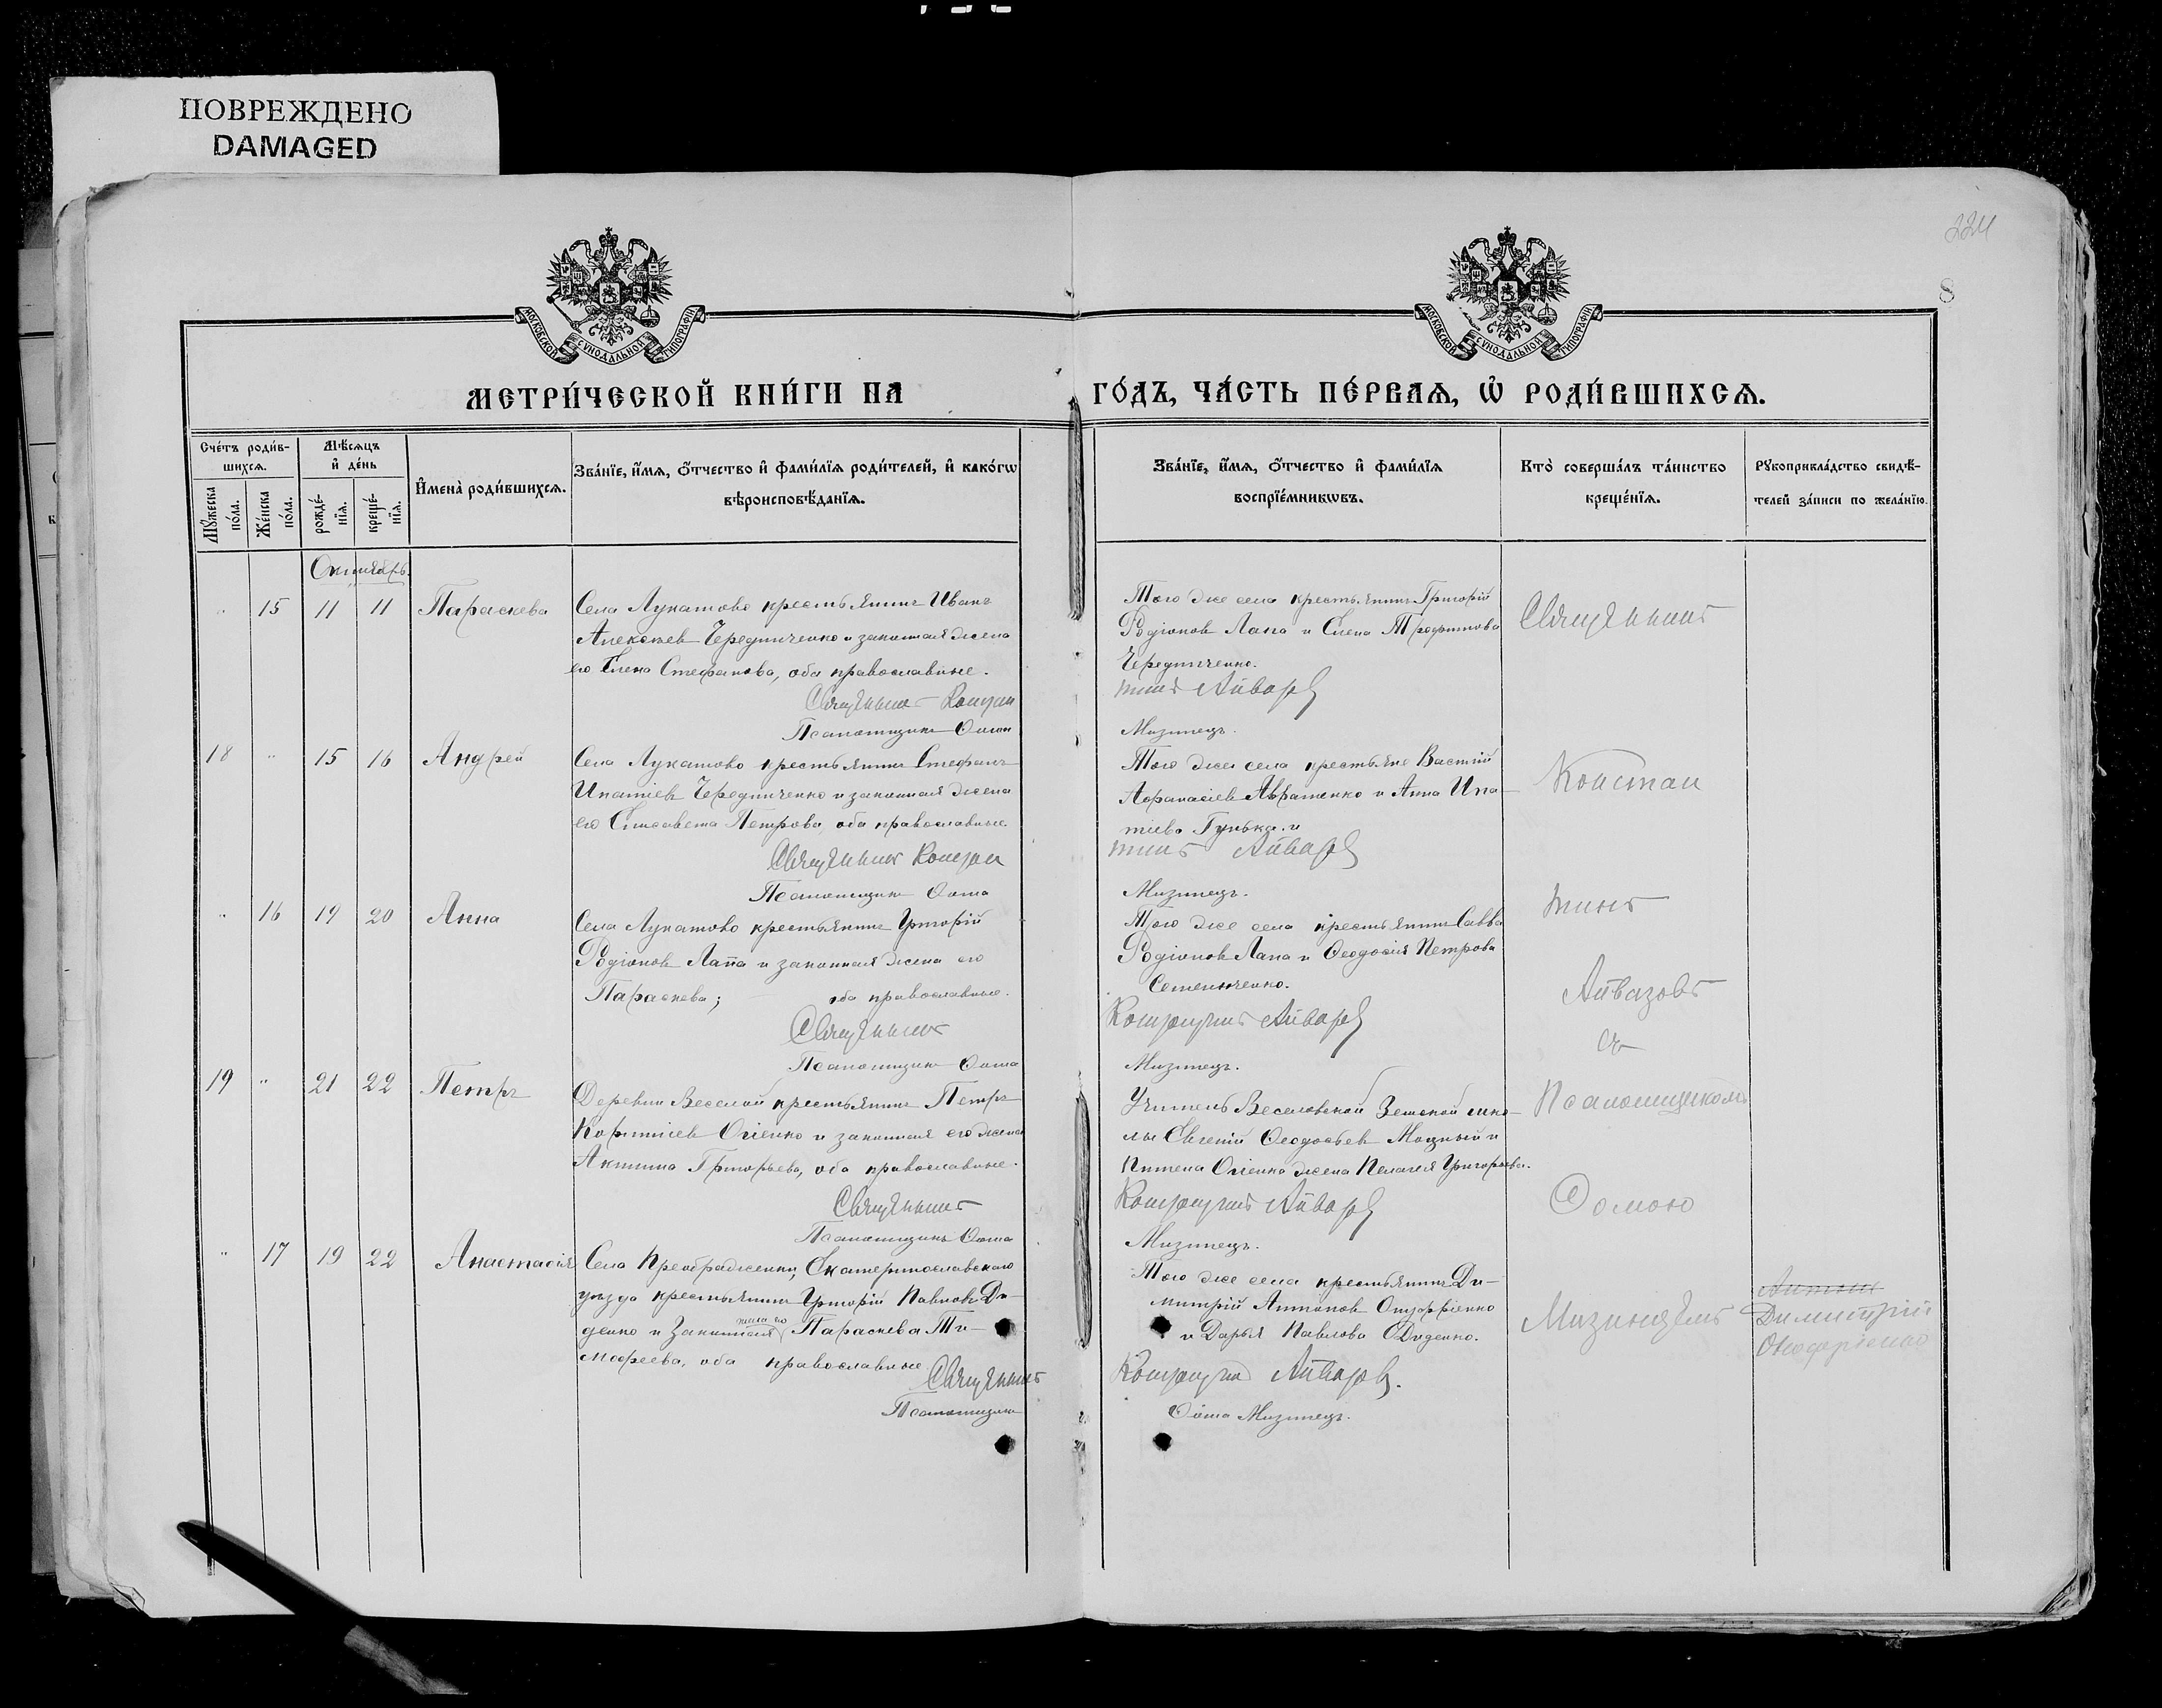 ПОВРЕЖДЕНО
DAMAGED
224
8
МОСКОВСКОЙ СѴНОДАЛЬНОЙ ТИПОГРАФІИ
МОСКОВСКОЙ СѴНОДАЛЬНОЙ ТИПОГРАФІИ
МЕТРИ́ЧЕСКОЙ КНИ́ГИ НА
ГО́ДЪ, ЧА́СТЬ ПЕ́РВАѦ, Ѡ҆ РОДИ́ВШИХСѦ.
Сче́тъ роди́в-
шихсѧ.
Мѣ́сѧцъ
и҆ де́нь
Мꙋ́жеска
по́ла.
Же́нска
по́ла.
рожде́-
нїѧ.
креще́-
нїѧ.
И҆мена̀ роди́вшихсѧ.
Зва́нїе, и҆́мѧ, ѻ҆́тчество и҆ фами́лїѧ роди́телей, и҆ како́гѡ
вѣроисповѣ́данїѧ.
Зва́нїе, и҆́мѧ, ѻ҆́тчество и҆ фами́лїѧ
воспрїе́мникѡвъ.
Кто̀ соверша́лъ та́инство
креще́нїѧ.
Рꙋкоприкла́дство свидѣ́-
телей за́писи по жела́нїю.
Октябрь.
" 15 11 11 Параскева
Села Лукатово крестьянинъ Иванъ
Алексѣев Чередниченко и законная жена
его Елена Стефанова, оба православные.
Священникъ Констан
Псаломщикъ Ѳома
Того же села крестьянинъ Григорій
Родіонов Лапа и Елена Трофимова
Чередниченко.
тинъ Айвазов
Мизинецъ.
Священникъ
18 " 15 16 Андрей
Села Лукатово крестьянинъ Стефанъ
Ипатіев Чередниченко и законная жена
его Елисавета Петрова, оба православные.
Священникъ Констан
Псаломщикъ Ѳома
Того же села крестьяне Василій
Афанасіев Авраменко и Анна Ипа-
тіева Гунька.
тинъ Айвазов
Мизинецъ.
Констан
" 16 19 20 Анна
Села Лукатово крестьянинъ Григорій
Родіонов Лапа и законная жена его
Параскева; оба православные.
Священникъ
Псаломщикъ Ѳома
Того же села крестьянинъ Савва
Родіонов Лапа и Ѳеодосія Петрова
Семенюченко.
Константинъ Айвазов
Мизинецъ.
тинъ
Айвазовъ
съ
19 " 21 22 Петръ
Деревни Веселой крестьянинъ Петръ
Корнилиев Огіенко и законная его жена
Акилина Григорьева, оба православные.
Священникъ
Псаломщикъ Ѳома
Учитель Веселовской Земской шко-
лы Евгеній Ѳеодосьев Мощный и
Огіенка жена Пелагея Григорьева.
Константинъ Айвазов
Мизинецъ.
Псаломщикомъ
Ѳомою
" 17 19 22 Анастасія
Села Преображенки, Екатеринославскаго
уѣзда крестьянинъ Григорій Павлов Ди-
денко и Законная жена его Параскева Ти-
мофеева, оба православные.
Священникъ
Псаломщикъ
Того же села крестьянинъ Ди-
митрій Антонов Онуфріенко
и Дарья Павлова Диденко.
Константинъ Айвазов.
Ѳома Мизинецъ.
Мизинцемъ
Димитрій